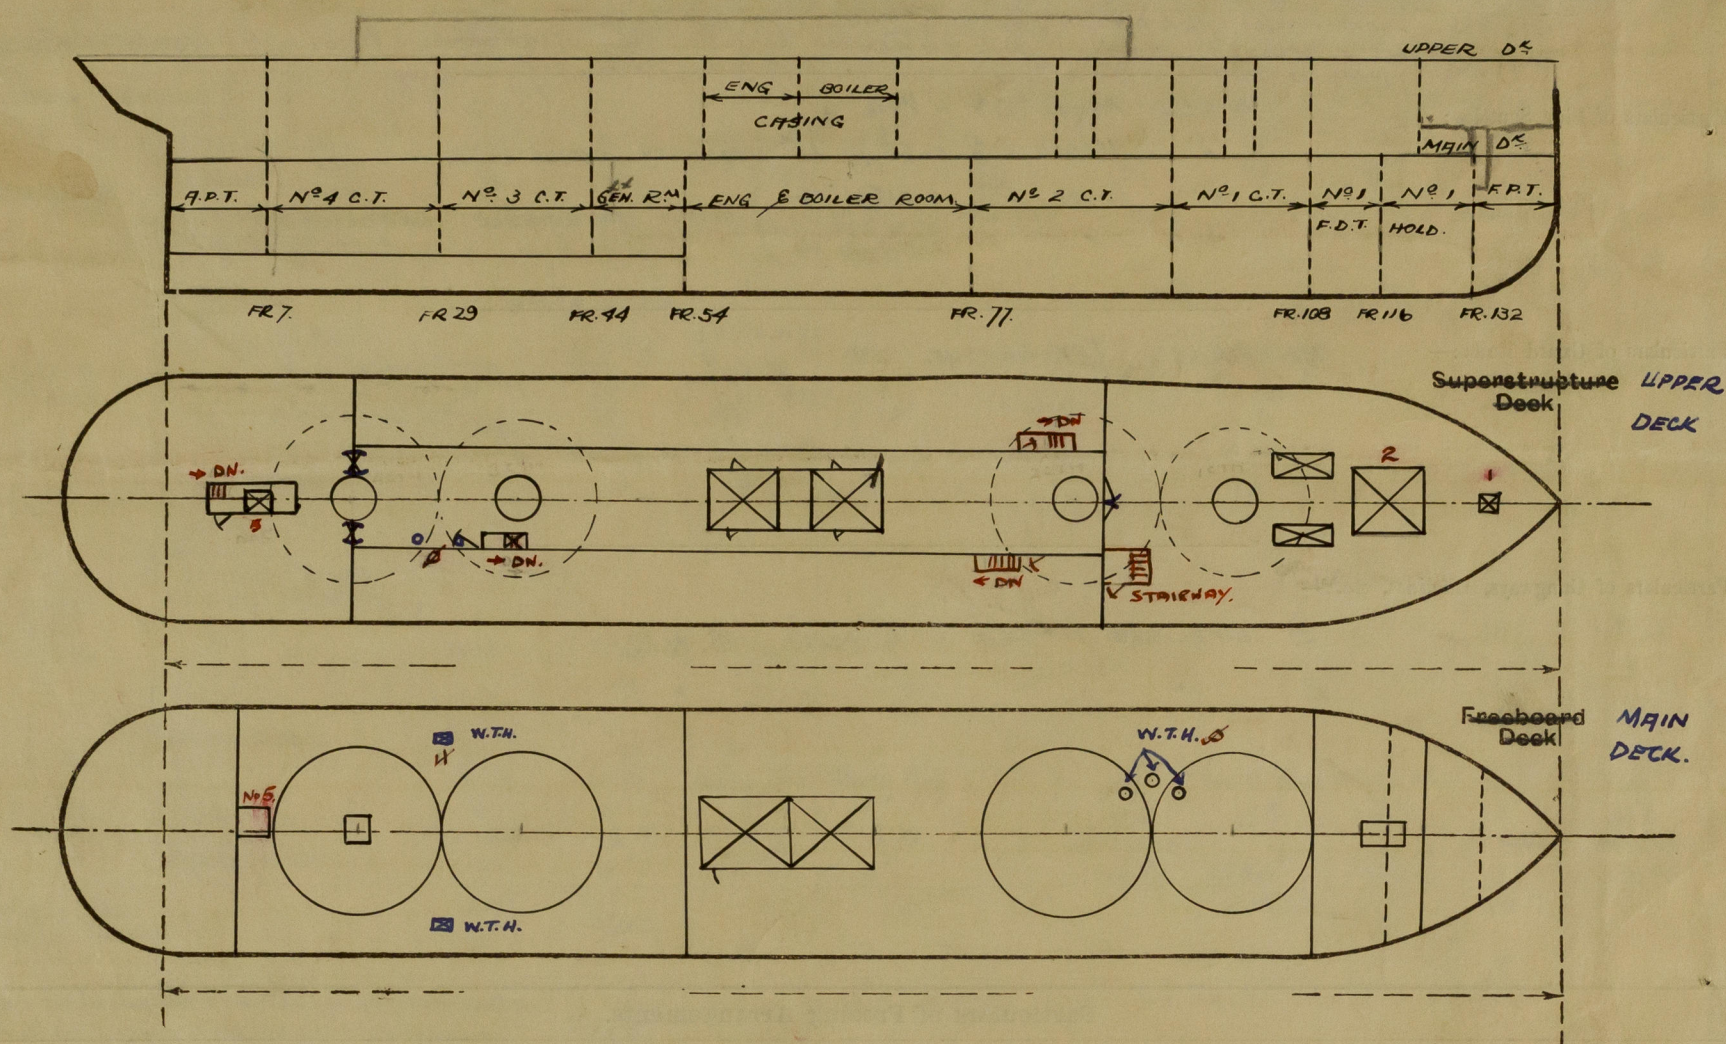 UPPER Dᴷ
ENG BOILER
CASING
MAIN Dᴷ
A.P.T. Nº 4 C.T. Nº 3 C.T. GEN. Rᴹ ENG & BOILER ROOM Nº 2 C.T. Nº 1 C.T. Nº 1 Nº 1 F.P.T.
F.D.T. HOLD.
FR 7. FR 29 FR. 44 FR. 54 FR. 77. FR. 108 FR 116 FR. 132
Superstructure UPPER
Deck DECK
→ DN
→ DN. 2 1
5
→ DN.
← DN
STAIRWAY.
Freeboard MAIN
Deck DECK.
W.T.H. W.T.H.
4
No 5.
W.T.H.